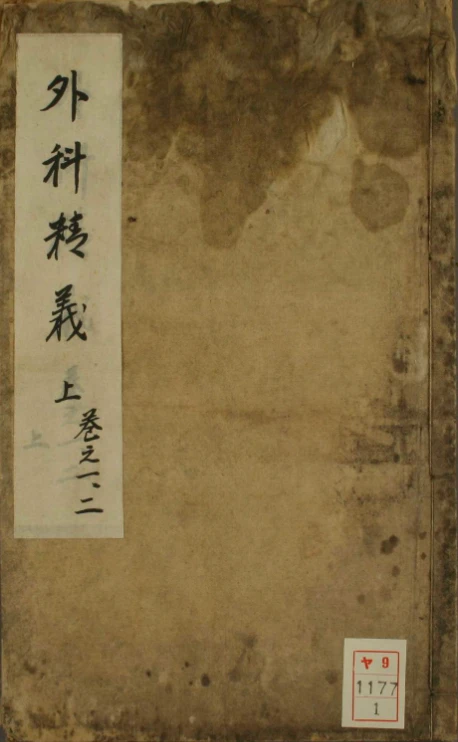 外科精義
上
巻之一、二
ヤ9
1177
1